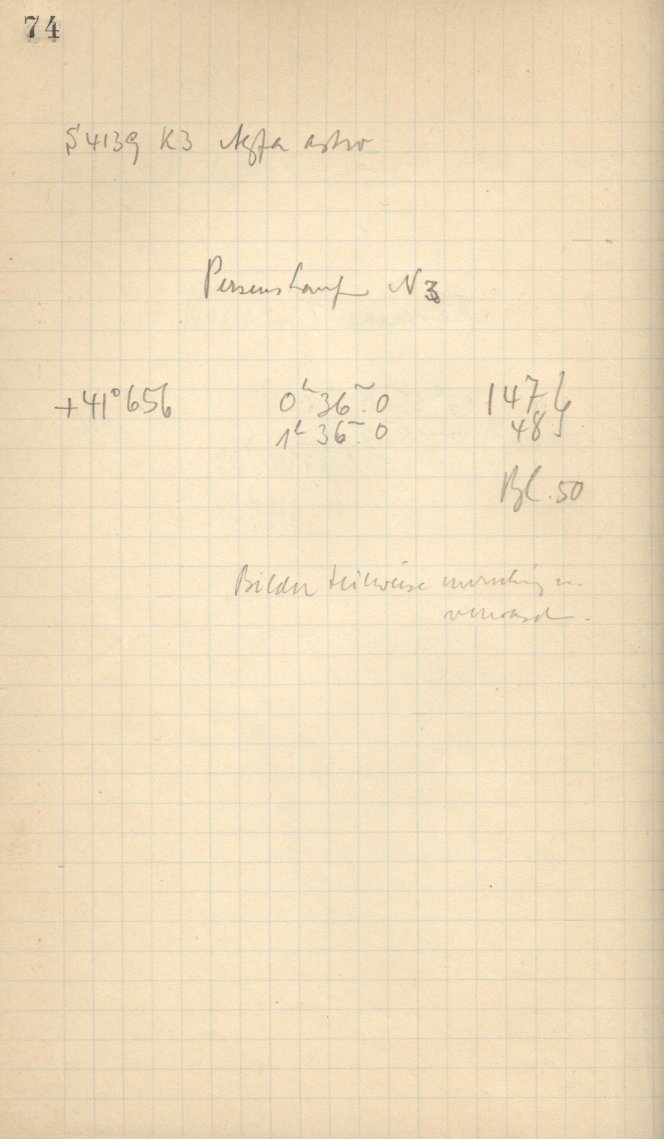 74
S 4139 K3 Agfa astro
Perseushauf N 3
+41°656 0ʰ 36ᵐ.0 147.
1ʰ 36ᵐ.0 48
Bl. 50
Bilder teilweise unruhig u.
verwasch.